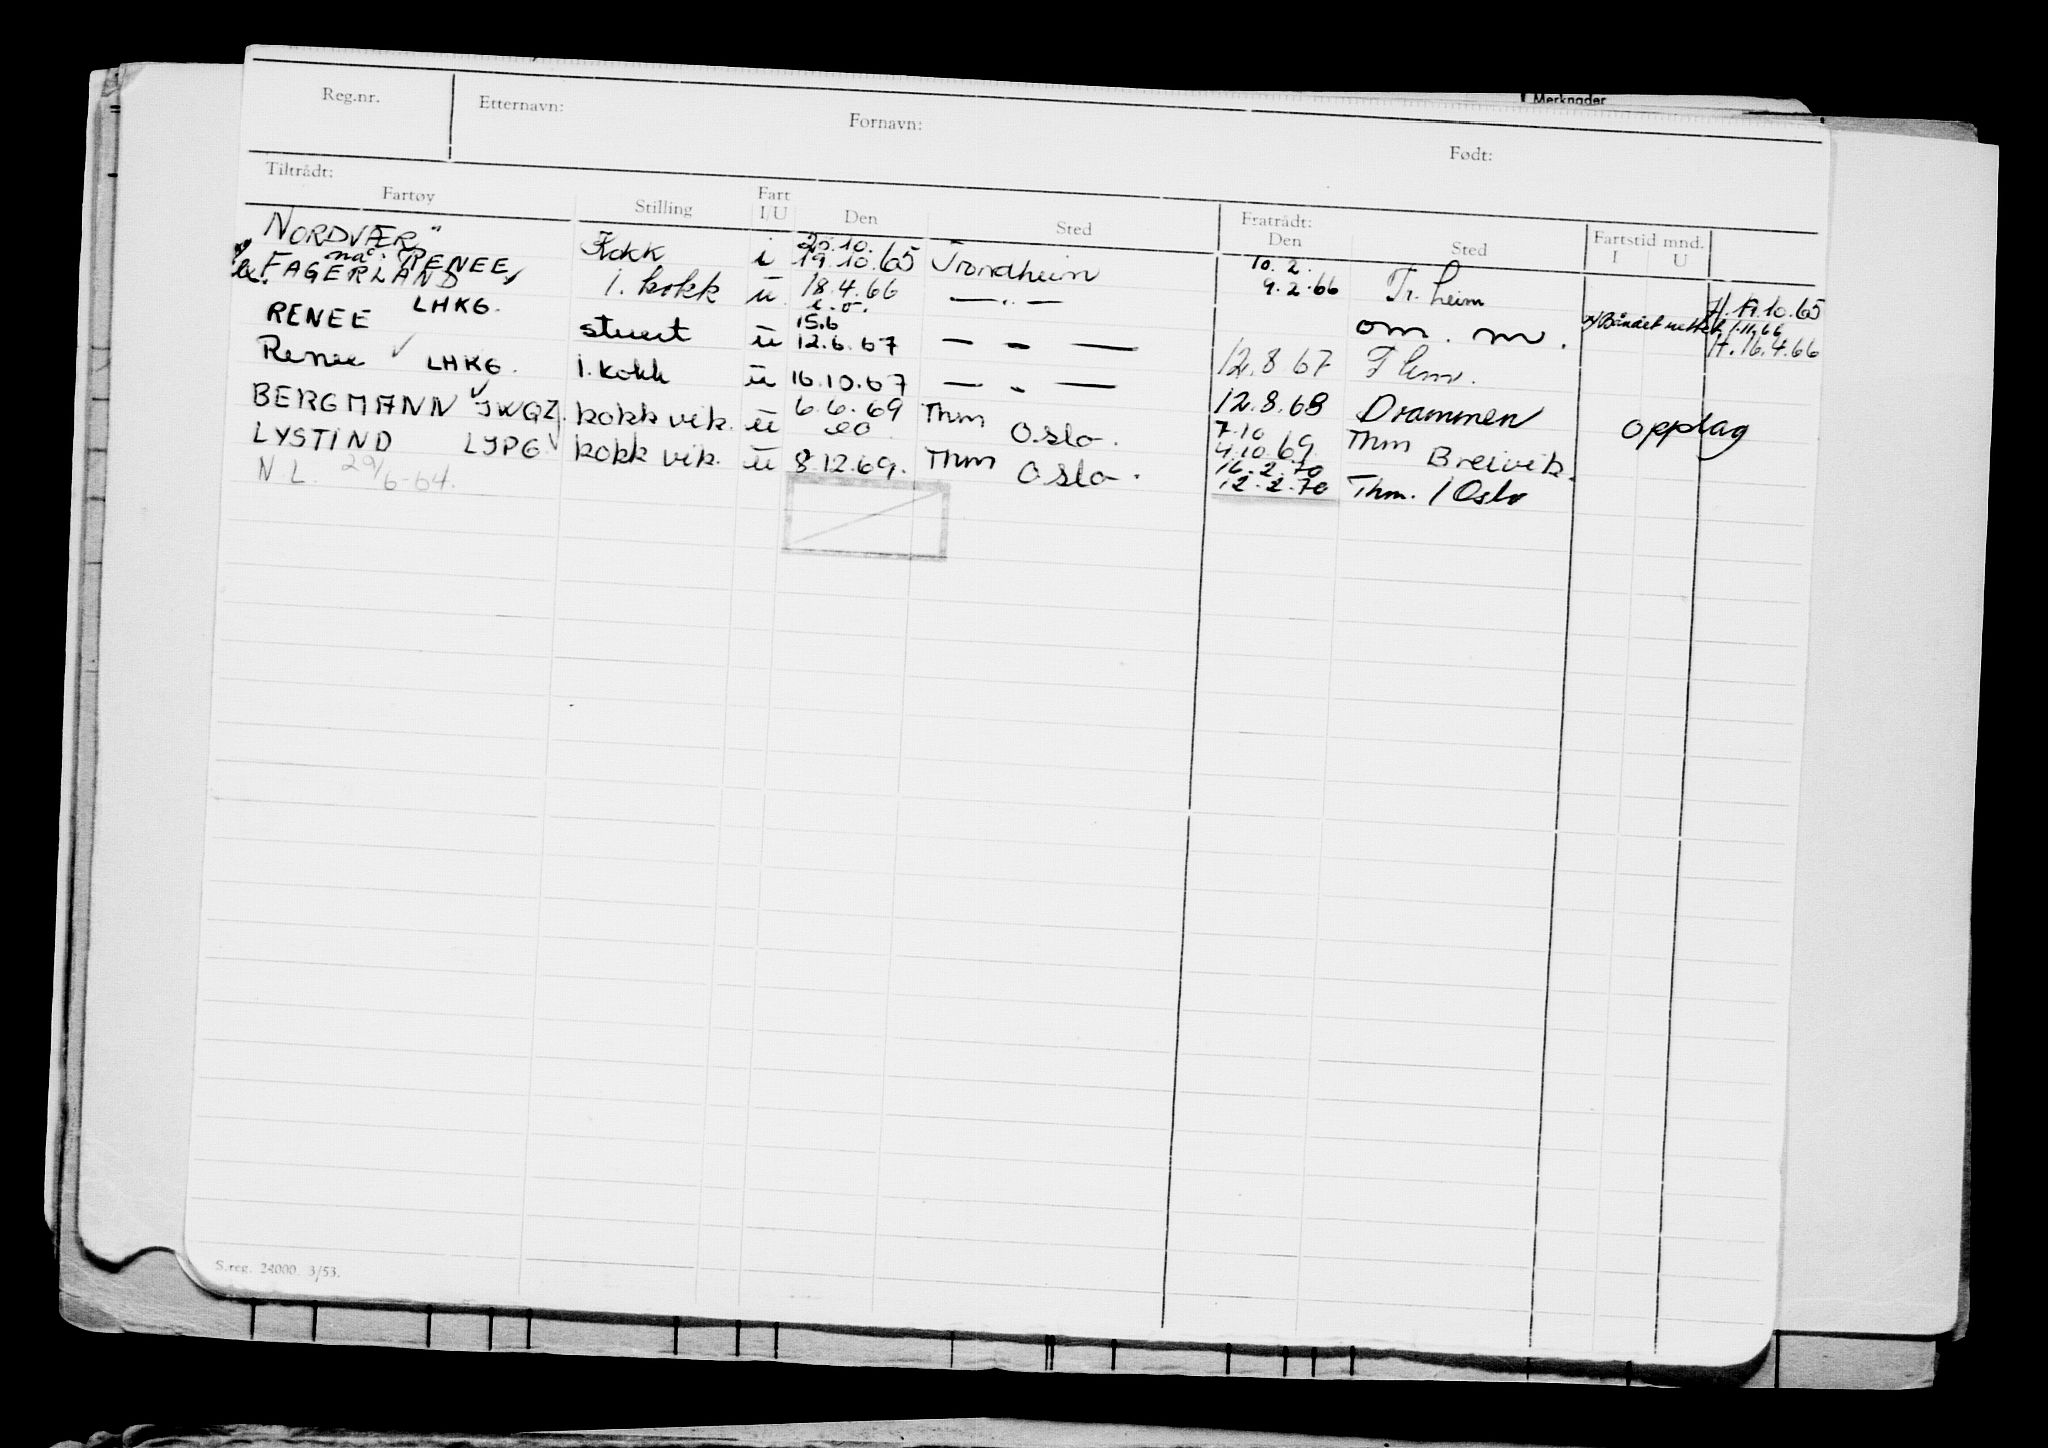 Merknader
Reg.nr. Etternavn: Fornavn: Født:
Tiltrådt: Fratrådt:
Fartøy Stilling Fart I/U Den Sted Den Sted Fartstid mnd. I U
20.10. 10.2.
NORDVÆR" Kokk i 19.10.65 Trondheim 9.2.66 Tr.heim H. 19.10.65
nå: RENEE
FAGERLAND 1. kokk u 18.4.66 — " — om. m. H. 16.4.66
LHKG. e.o.
15.6
RENEE stuert u 12.6.67 — " — 12.8 67 Thm.
Renee ✓ LHKG. 1. kokk u 16.10.67 — " — 12.8.68 Drammen opplag
BERGMANN ✓ JWQZ. kokk vik. u 6.6.69 Thm Oslo. 7.10 4.10.69 Thm Breivik.
eo
LYSTIND LJPG ✓ kokk vik. u 8.12.69. Thm Oslo. 16.2.70 12.2.70 Thm. / Oslo
N.L. 29/6-64.
S.reg. 24000. 3/53.